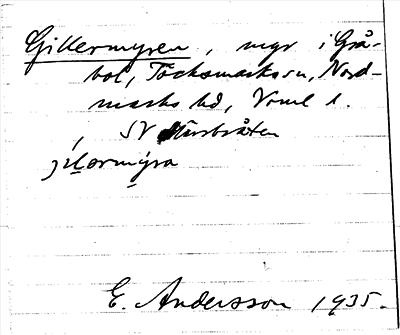 Gillermyren, myr i Grå-
bol, Töcksmarks sn, Nord-
marks hd, Vrml l.
SV
jil̯ərmýra
E. Andersson 1935.